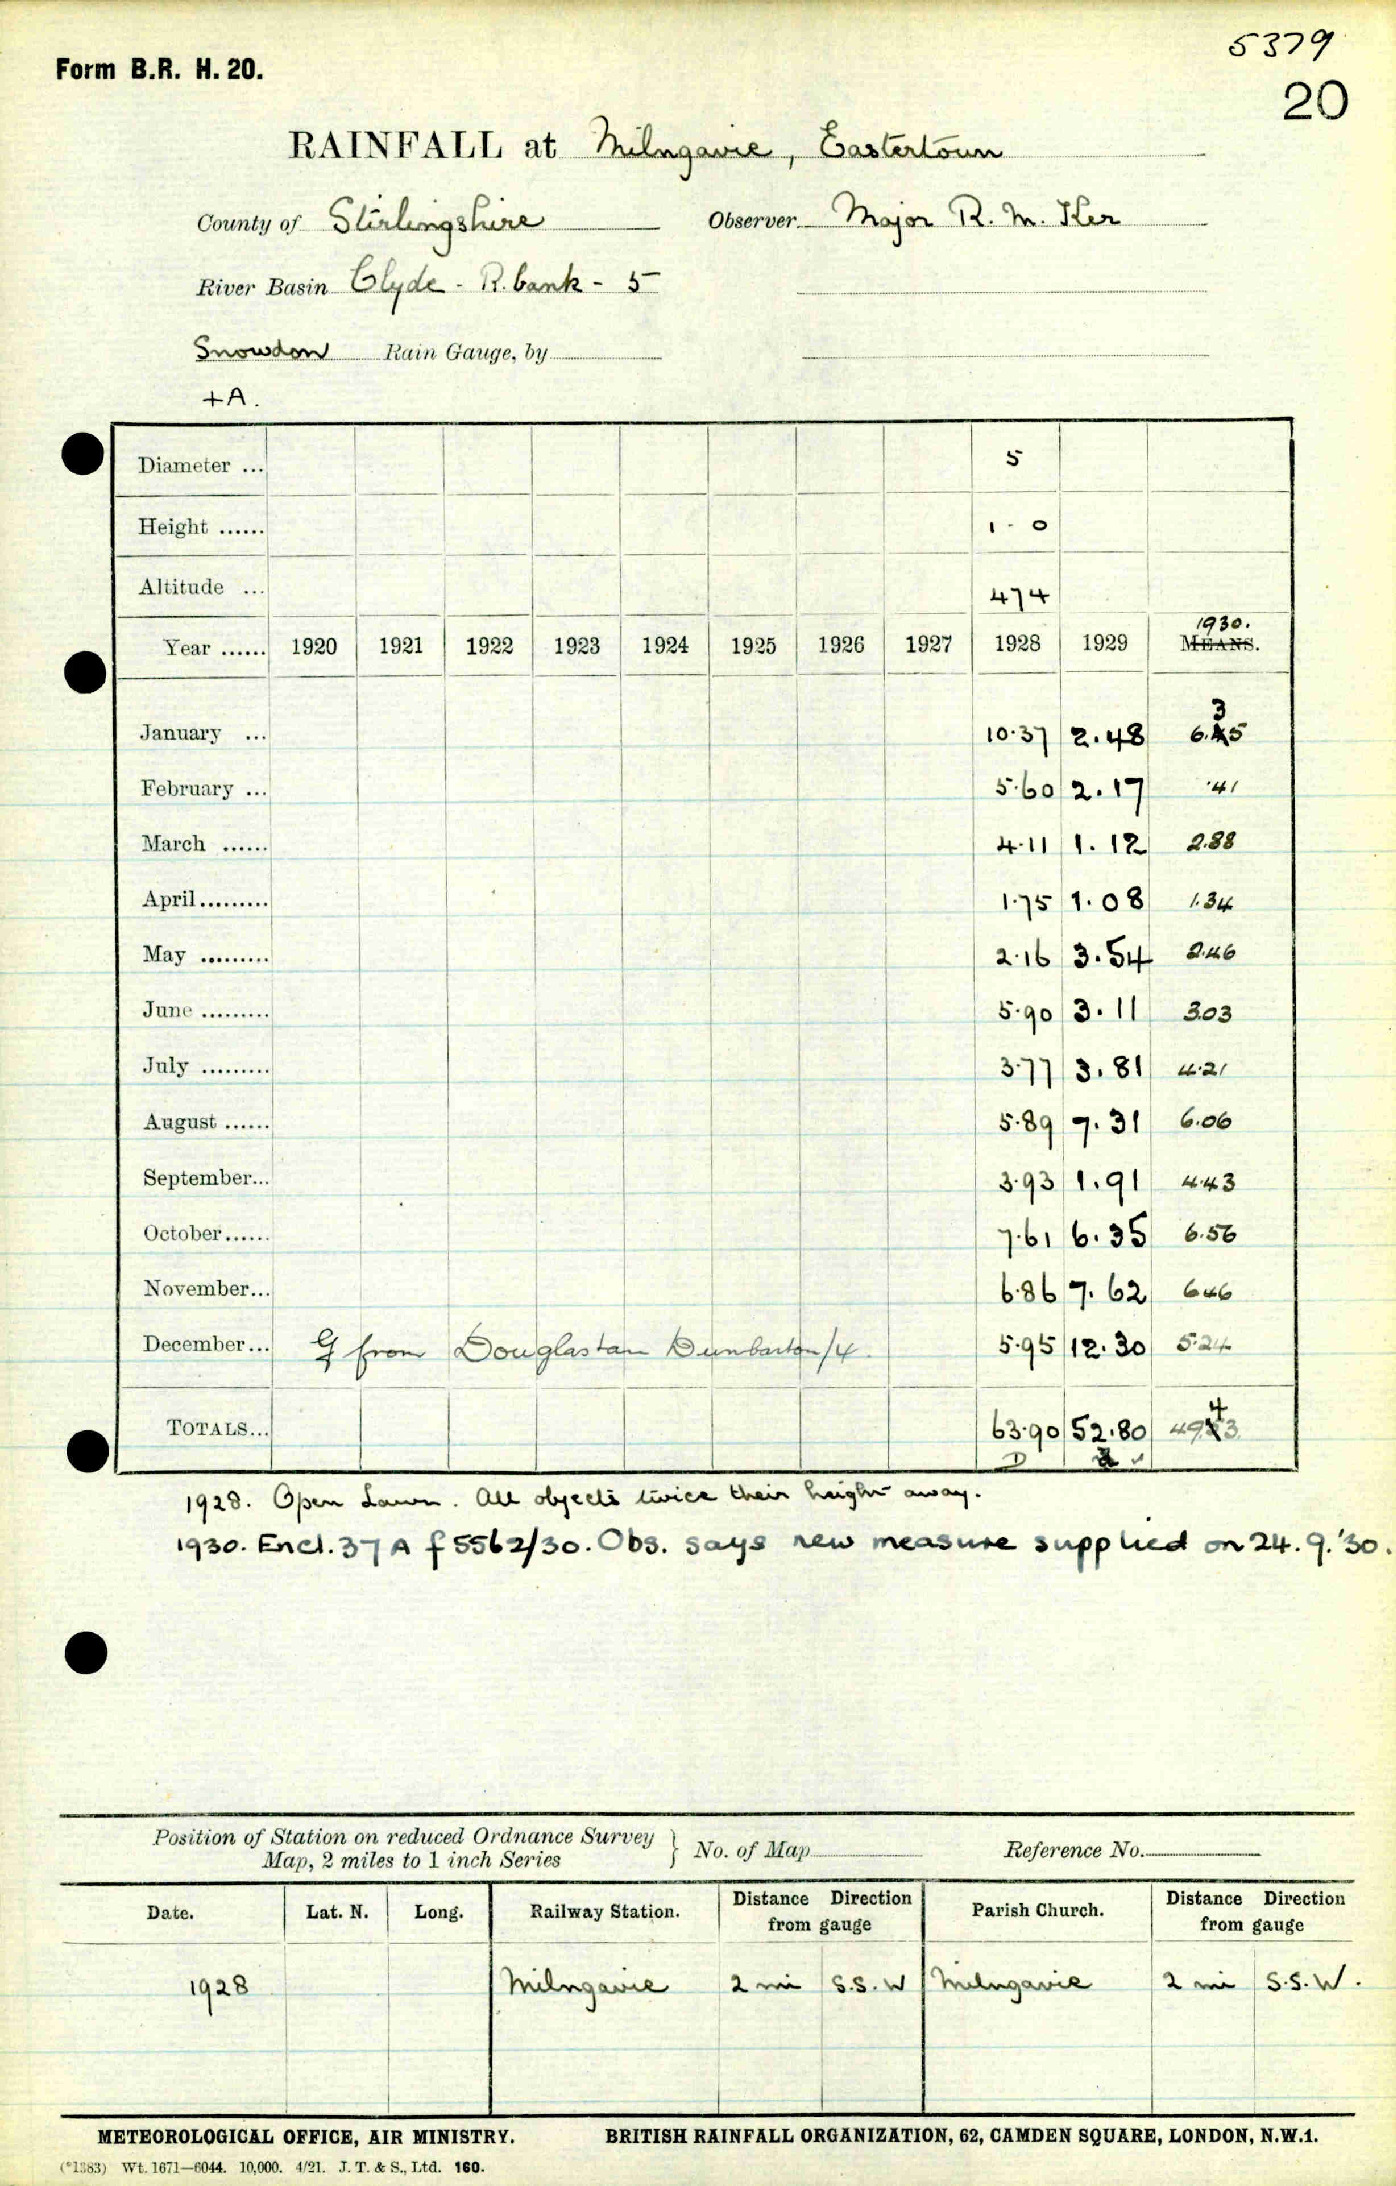 5379
Form B.R. H. 20.
20
RAINFALL at Milngavie, Eastertoun
County of Stirlingshire Observer Major R. M. Ker
River Basin Clyde - R. bank - 5
Snowdon Rain Gauge, by
+A.
Diameter ... 5
Height ...... 1 - 0
Altitude ... 474
1930.
Year ...... 1920 1921 1922 1923 1924 1925 1926 1927 1928 1929 MEANS.
3
January ... 10.37 2.48 6.45
February ... 5.60 2.17 .41
March ...... 4.11 1.12 2.88
April ......... 1.75 1.08 1.34
May ......... 2.16 3.54 2.46
June ......... 5.90 3.11 3.03
July ......... 3.77 3.81 4.21
August ...... 5.89 7.31 6.06
September... 3.93 1.91 4.43
October...... 7.61 6.35 6.56
November... 6.86 7.62 6.46
December... from Douglastan Dunbarton/4. 5.95 12.30 5.24
4
TOTALS... 63.90 52.80 49.53
D
1928. Open Lawn. All objects twice their height away.
1930. Encl. 37 A f 5562/30. Obs. says new measure supplied on 24.9.'30.
Position of Station on reduced Ordnance Survey
Map, 2 miles to 1 inch Series } No. of Map Reference No.
Date. Lat. N. Long. Railway Station. Distance Direction from gauge Parish Church. Distance Direction from gauge
1928 Milngavie 2 mi S.S.W Milngavie 2 mi S.S.W.
METEOROLOGICAL OFFICE, AIR MINISTRY. BRITISH RAINFALL ORGANIZATION, 62, CAMDEN SQUARE, LONDON, N.W.1.
(*1383) Wt. 1671—6044. 10,000. 4/21. J. T. & S., Ltd. 160.